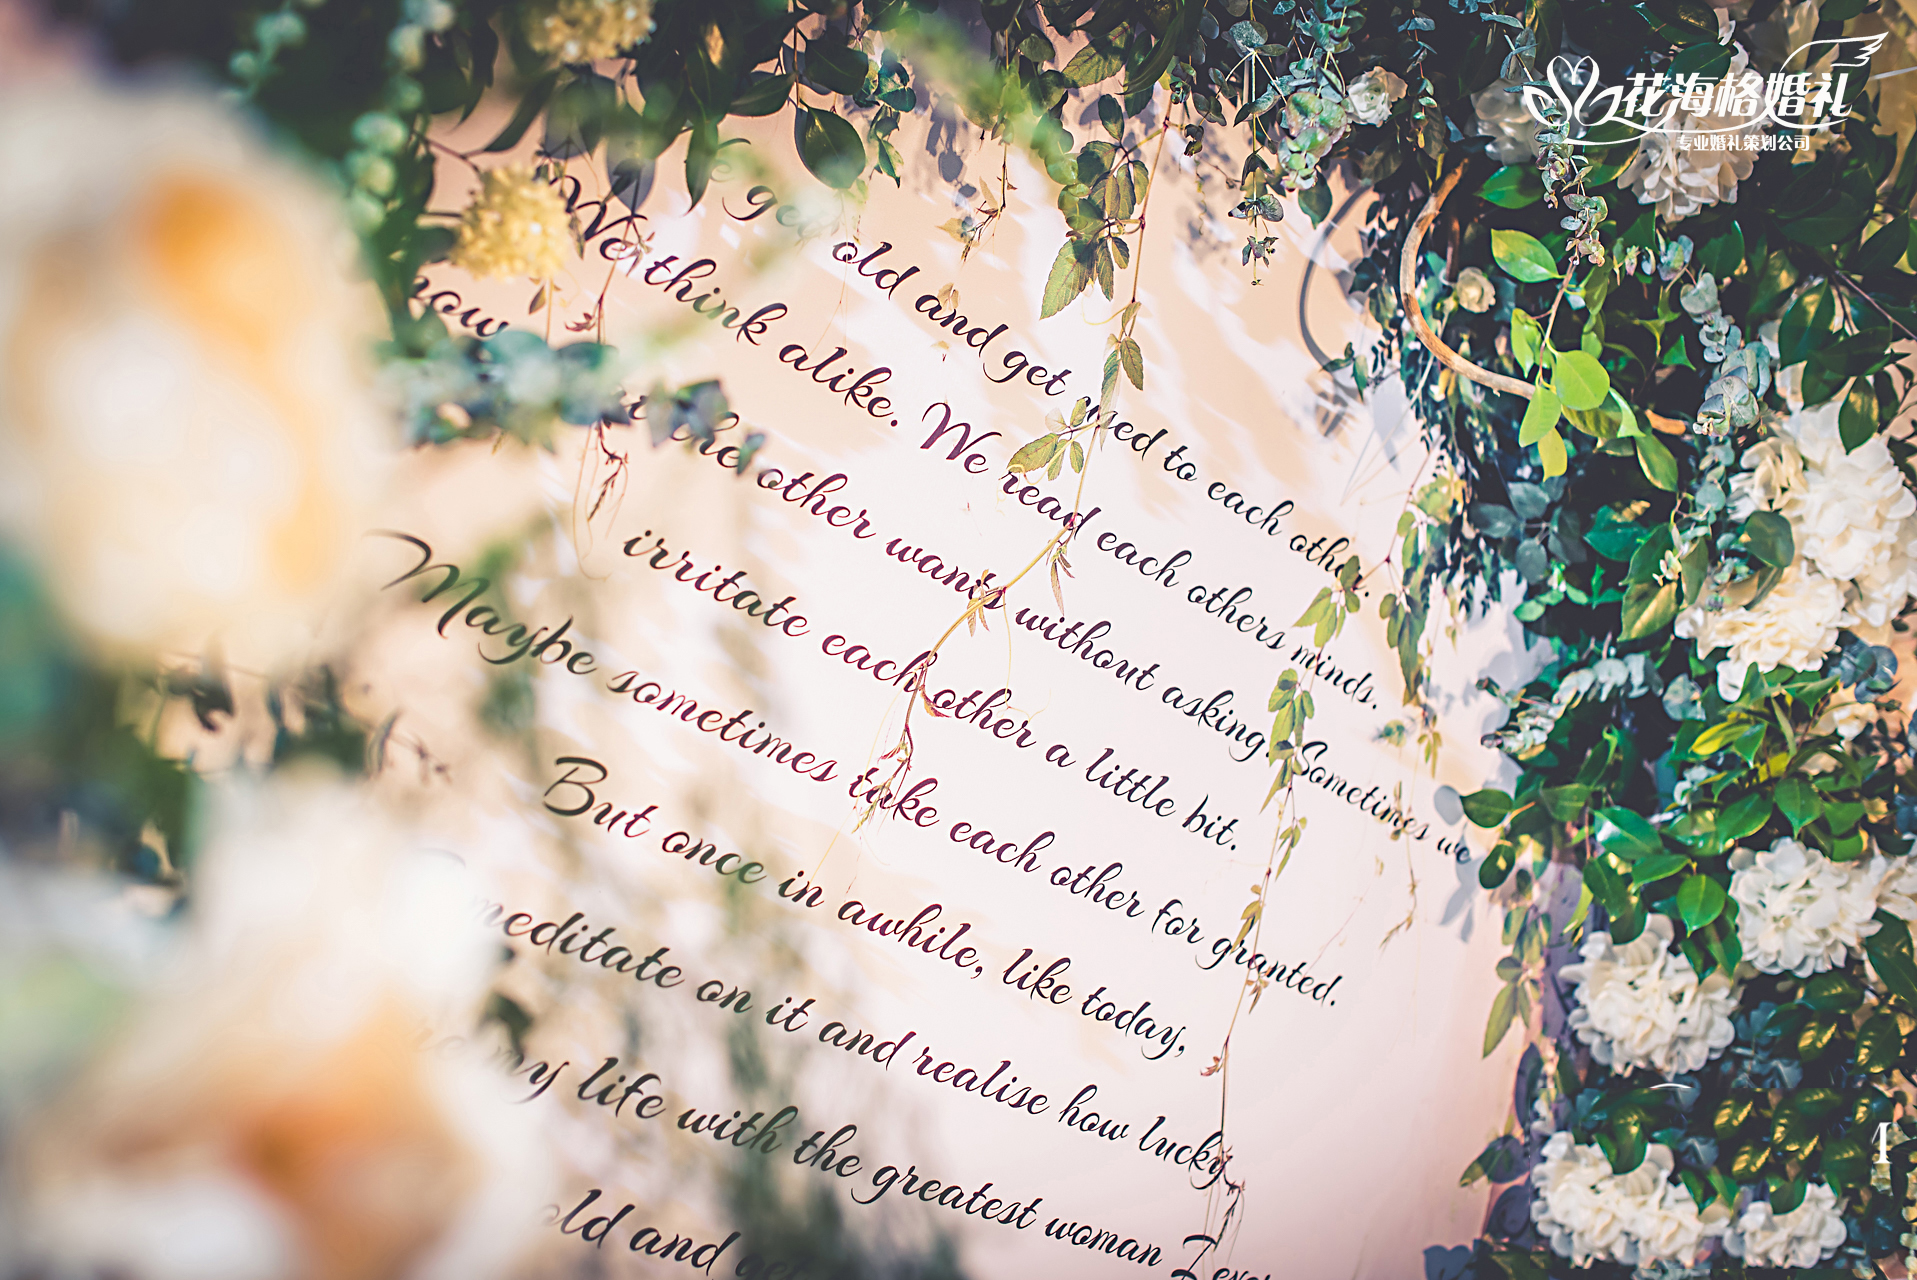 花海格婚礼
专业婚礼策划公司
old and get used to each other.
We think alike. We read each others minds.
the other wants without asking. Sometimes we
irritate each other a little bit.
Maybe sometimes take each other for granted.
But once in awhile, like today,
meditate on it and realise how lucky
my life with the greatest woman I ever
old and